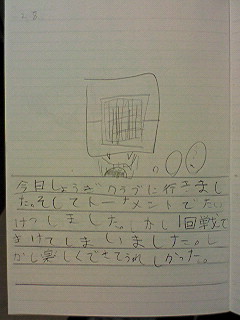 今日しょうぎクラブに行きまし
た。そしてトーナメントでたい
けつしました。しかし1回戦で
まけてしまいました。し
かし楽しくできてうれしかった。